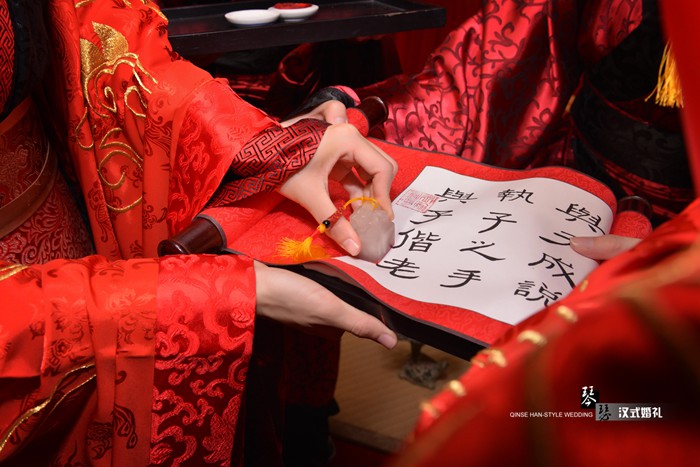 與子成說
執子之手
與子偕老
琴瑟
汉式婚礼
QINSE HAN-STYLE WEDDING